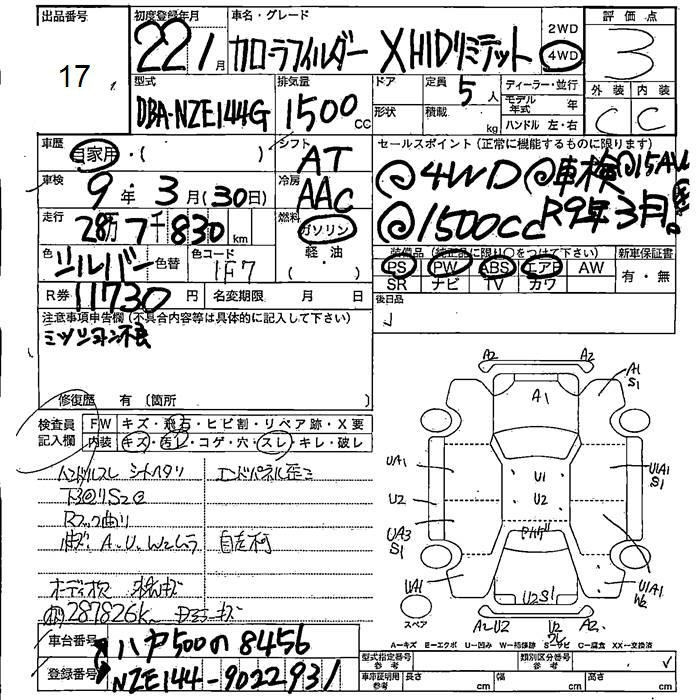 出品番号
17
初度登録年月
22 / 1月
車名・グレード
カローラフィルダー XHIDリミテット
2WD
4WD
評価点
3
外装 内装
C C
型式
DBA-NZE144G
排気量
1500cc
ドア
形状
定員
5人
積載
kg
ディーラー・並行
モデル年式 年
ハンドル 左・右
車歴
自家用・( )
シフト
AT
車検
9年3月(30日)
冷房
AAC
走行
28万7千830km
燃料
ガソリン
軽・油
( )
色
シルバー
色替
色コード
1F7
R券
11730円
名変期限 月 日
セールスポイント(正常に機能するものに限ります)
◎4WD ◎車検
◎1500cc R9年3月
装備品(純正品に限り○をつけて下さい)
PS PW ABS エアB AW
SR ナビ TV カワ
新車保証書
有・無
後日品
注意事項申告欄(不具合内容等は具体的に記入して下さい)
ミッション不良
修復歴 有〔箇所
検査員記入欄
FW キズ・飛石・ヒビ割・リペア跡・X要
内装 キズ・汚レ・コゲ・穴・スレ・キレ・破レ
ハンドルスレ シートヘタリ
エンドパネル歪ミ
下回りS2
自走可
A.U.W2ムラ
オーディオ欠
287826k
車台番号
ハヤ500の8456
登録番号
NZE144-9022931
A2 A2
A1
A1
S1
UA1
U1
U1A1
S1
U2
U2
UA3
S1
UA1
U2S1
U1A1
W2
スペア
A2U2
U2
A2
A-キズ E-エクボ U-凹み W-補修跡 S-サビ C-腐食 XX-交換済
型式指定番号 参考
類別区分番号 参考
車庫証明用 参考
長さ cm
幅 cm
高さ cm